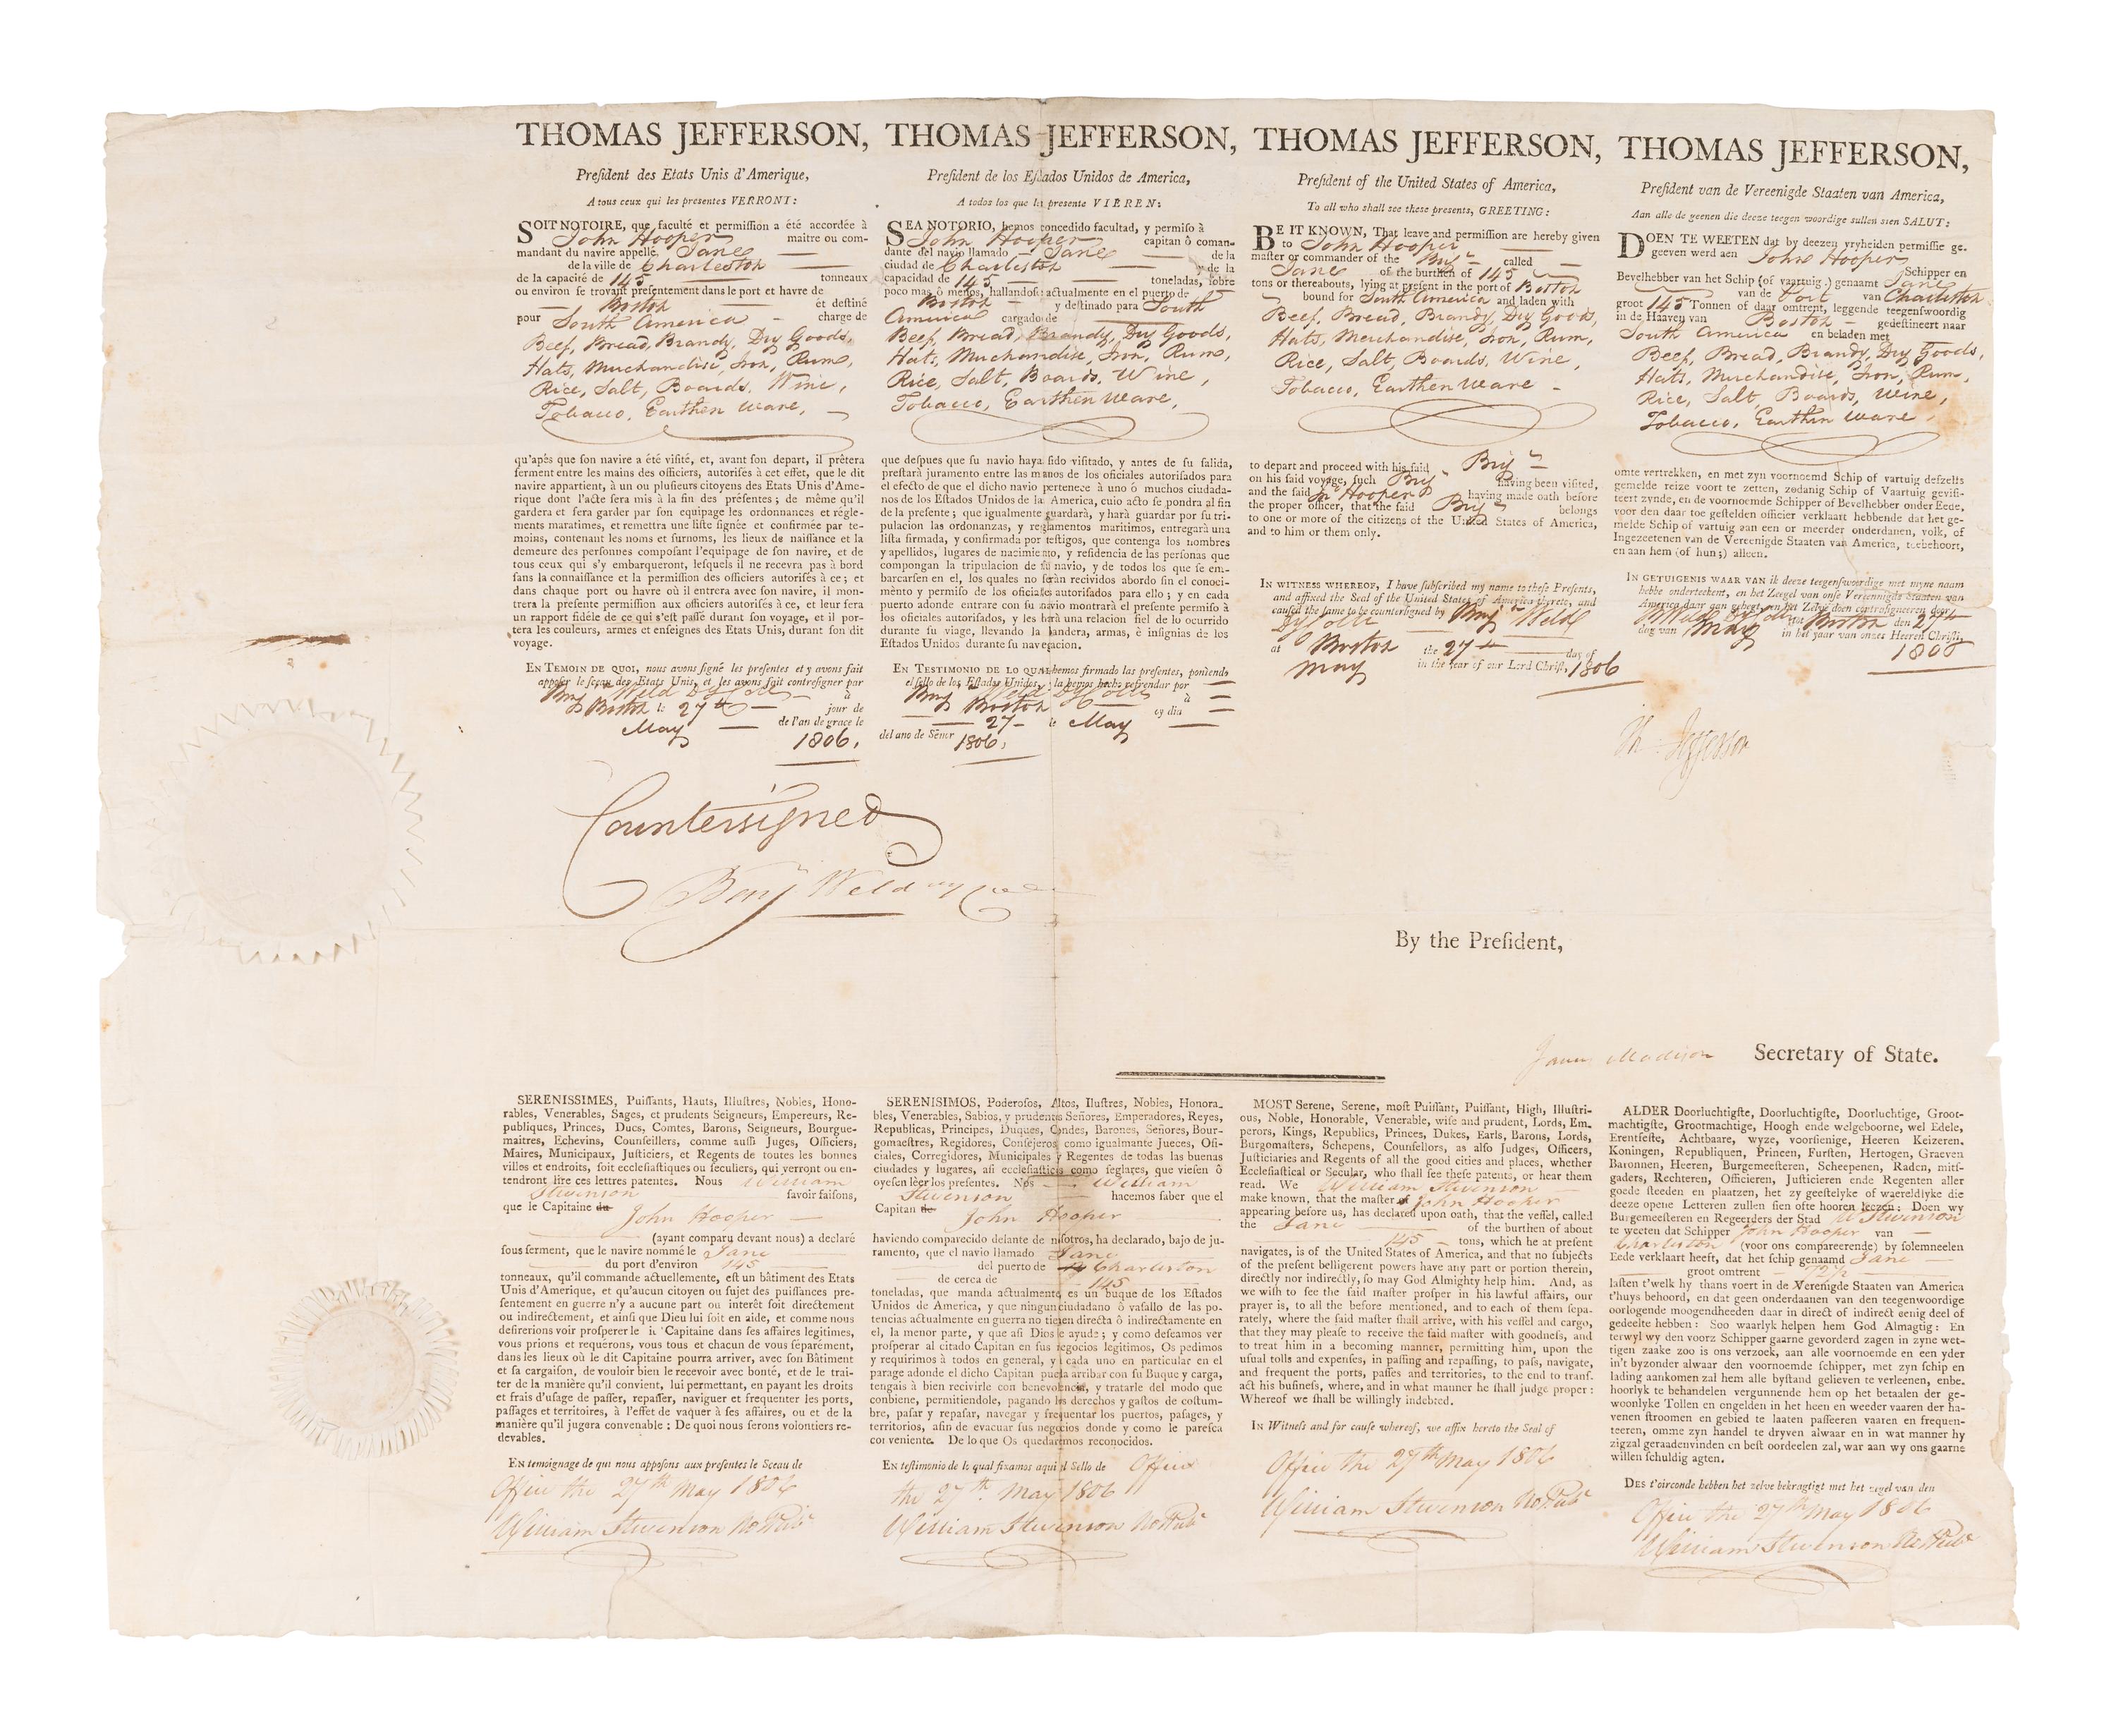 THOMAS JEFFERSON,
Preſident des Etats Unis d'Amerique,
A tous ceux qui les preſentes VERRONT:
SOIT NOTOIRE, que faculté et permiſſion a été accordée à
John Hooper maitre ou com-
mandant du navire appellé, Jane
de la ville de Charleston
de la capacité de 145 tonneaux
ou environ ſe trovant preſentement dans le port et havre de
Boston et deſtiné
pour South America charge de
Beef, Bread, Brandy, Dry Goods,
Hats, Merchandise, Iron, Rum,
Rice, Salt, Boards, Wine,
Tobacco, Earthen ware,
qu'apés que ſon navire a été viſité, et, avant ſon depart, il prêtera
ſerment entre les mains des officiers, autoriſés à cet effét, que le dit
navire appartient, à un ou pluſieurs citoyens des Etats Unis d'Ame-
rique dont l'acte ſera mis à la fin des préſentes; de même qu'il
gardera et fera garder par ſon equipage les ordonnances et régle-
ments maratimes, et remettra une liſte ſignée et confirmée par te-
moins, contenant les noms et ſurnoms, les lieux de naiſſance et la
demeure des perſonnes compoſant l'equipage de ſon navire, et de
tous ceux qui s'y embarqueront, leſquels il ne recevra pas à bord
ſans la connaiſſance et la permiſſion des officiers autoriſés à ce; et
dans chaque port ou havre où il entrera avec ſon navire, il mon-
trera la preſente permiſſion aux officiers autoriſés à ce, et leur fera
un rapport fidéle de ce qui s'eſt paſſé durant ſon voyage, et il por-
tera les couleurs, armes et enſeignes des Etats Unis, durant ſon dit
voyage.
EN TEMOIN DE QUOI, nous avons ſigné les preſentes et y avons fait
appoſer le ſceau des Etats Unis, et les avons fait contreſigner par
Benj Weld Dy Coll à
Boston le 27th jour de
May de l'an de grace le
1806,
THOMAS JEFFERSON,
Preſident de los Eſtados Unidos de America,
A todos los que la preſente VIEREN:
SEA NOTORIO, hemos concedido facultad, y permiſo à
John Hooper capitan ô coman-
dante del navio llamado Jane de la
ciudad de Charleston y de la
capacidad de 145 toneladas, ſobre
poco mas ô menos, hallandoſe actualmente en el puerto de
Boston y deſtinado para South
America cargado de
Beef, Bread, Brandy, Dry Goods,
Hats, Merchandise, Iron, Rum,
Rice, Salt, Boards, Wine,
Tobacco, Earthen ware,
que deſpues que ſu navio haya ſido viſitado, y antes de ſu ſalida,
preſtarà juramento entre las manos de los oficiales autoriſados para
el efecto de que el dicho navio pertenece à uno ô muchos ciudada-
nos de los Eſtados Unidos de la America, cuio acto ſe pondra al fin
de la preſente; que igualmente guardarà, y harà guardar por ſu tri-
pulacion las ordonanzas, y reglamentos maritimos, entregarà una
liſta firmada, y confirmada por teſtigos, que contenga los nombres
y apellidos, lugares de nazimiento, y reſidencia de las perſonas que
compongan la tripulacion de ſu navio, y de todos los que ſe em-
barcarſen en el, los quales no ſeràn recividos abordo ſin el conoci-
mènto y permiſo de los oficiales autoriſados para ello; y en cada
puerto adonde entrare con ſu navio montrarà el preſente permiſo à
los oficiales autoriſados, y les harà una relacion fiel de lo ocurrido
durante ſu viage, llevando la bandera, armas, è inſignias de los
Eſtados Unidos durante ſu navegacion.
EN TESTIMONIO DE LO QUAL hemos firmado las preſentes, poniendo
el ſello de los Eſtados Unidos, y la hemos hecho refrendar por
Benj Weld Dy Coll à
Boston ey dia
27 de May
del ano de Sênor 1806,
THOMAS JEFFERSON,
Preſident of the United States of America,
To all who ſhall ſee theſe preſents, GREETING:
BE IT KNOWN, That leave and permiſſion are hereby given
to John Hooper
maſter or commander of the Brig called
Jane of the burthen of 145
tons or thereabouts, lying at preſent in the port of Boston
bound for South America and laden with
Beef, Bread, Brandy, Dry Goods,
Hats, Merchandise, Iron, Rum,
Rice, Salt, Boards, Wine,
Tobacco, Earthen ware
to depart and proceed with his ſaid Brig
on his ſaid voyage, ſuch Brig having been viſited,
and the ſaid Jn Hooper having made oath before
the proper officer, that the ſaid Brig belongs
to one or more of the citizens of the United States of America,
and to him or them only.
IN WITNESS WHEREOF, I have ſubſcribed my name to theſe Preſents,
and affixed the Seal of the United States of America thereto, and
cauſed the ſame to be counterſigned by Benj Weld
Dy Coll
at Boston the 27th day of
May in the Year of our Lord Chriſt, 1806
THOMAS JEFFERSON,
Preſident van de Vereenigde Staaten van America,
Aan alle de geenen die deeze teegen woordige sullen sien SALUT:
DOEN TE WEETEN dat by deezen vryheiden permiſſie ge-
geeven werd aen John Hooper
Schipper en
Bevelhebber van het Schip (of vaartuig) genaamt Jane
van de Port van Charleston
groot 145 Tonnen of daar omtrent, leggende teegenſwoordig
in de Haaven van Boston gedeſtineert naar
South America en beladen met
Beef, Bread, Brandy, Dry Goods,
Hats, Merchandise, Iron, Rum,
Rice, Salt, Boards, Wine,
Tobacco, Earthen ware
omte vertrekken, en met zyn voornoemd Schip of vartuig defzelfs
gemelde reize voort te zetten, zodanig Schip of Vaartuig geviſi-
teert zynde, en de voornoemde Schipper of Bevelhebber onder Eede,
voor den daar toe geſtelden officier verklaart hebbende dat het ge-
melde Schip of vartuig aan een or meerder onderdanen, volk, of
Ingezeetenen van de Vereenigde Staaten van America, toebehoort,
en aan hem (of hun;) alleen.
IN GETUIGENIS WAAR VAN ik deeze teegenſwoordige met myne naam
hebbe onderteekent, en het Zeegel van onſe Vereenigde Staaten van
America daar aan gehegt, en het Zelve doen contraſigneeren door
B Weld Dy Coll tot Boston den 27th
dag van May in het jaar van onzes Heeren Chriſti,
1806
Th Jefferson
Countersigned
Benj Weld
By the Preſident,
James Madison Secretary of State.
SERENISSIMES, Puiſſants, Hauts, Illuſtres, Nobles, Hono-
rables, Venerables, Sages, et prudents Seigneurs, Empereurs, Re-
publiques, Princes, Ducs, Comtes, Barons, Seigneurs, Bourgue-
maitres, Echevins, Counſeillers, comme auſſi Juges, Officiers,
Maires, Municipaux, Juſticiers, et Regents de toutes les bonnes
villes et endroits, ſoit eccleſiaſtiques ou ſeculiers, qui verront ou en-
tendront lire ces lettres patentes. Nous William
Stevenson ſavoir faiſons,
que le Capitaine du
John Hooper
(ayant comparu devant nous) a declaré
ſous ſerment, que le navire nommé le Jane
du port d'environ 145
tonneaux, qu'il commande actuellement, eſt un bâtiment des Etats
Unis d'Amerique, et qu'aucun citoyen ou ſujet des puiſſances pre-
ſentement en guerre n'y a aucune part ou interêt ſoit directement
ou indirectement, et ainſi que Dieu lui ſoit en aide, et comme nous
deſirerions voir proſperer le it Capitaine dans ſes affaires legitimes,
vous prions et requérons, vous tous et chacun de vous ſeparément,
dans les lieux où le dit Capitaine pourra arriver, avec ſon Bâtiment
et ſa cargaiſon, de vouloir bien le recevoir avec bonté, et de le trai-
ter de la manière qu'il convient, lui permettant, en payant les droits
et frais d'uſage de paſſer, repaſſer, naviguer et frequenter les ports,
paſſages et territoires, à l'effet de vaquer à ſes affaires, ou et de la
manière qu'il jugera convenable; De quoi nous ferons volontiers re-
devables.
EN temoignage de qui nous appoſons aux preſentes le Sceau de
Office the 27th May 1806
William Stevenson No Pub
SERENISIMOS, Poderoſos, Altos, Iluſtres, Nobles, Honora-
bles, Venerables, Sabios, y prudentes Señores, Emperadores, Reyes,
Republicas, Principes, Duques, Condes, Barones, Señores, Bour-
gomaeſtres, Regidores, Conſejeros, como igualmante Jueces, Ofi-
ciales, Corregidores, Municipales y Regentes de todas las buenas
ciudades y lugares, aſi eccleſiaſticis como ſeglares, que vieſen ô
oyeſen lèer los preſentes. Nos William
Stevenson hacemos ſaber que el
Capitan de
John Hooper
haviendo comparecido delante de noſotros, ha declarado, bajo de ju-
ramento, que el navio llamado Jane
del puerto de Charleston
de cerca de 145
toneladas, que manda actualmente, es un buque de los Eſtados
Unidos de America, y que ningun ciudadano ô vaſallo de las po-
tencias actualmente en guerra no tienen directa ô indirectamente en
el, la menor parte, y que aſi Dios le ayude; y como deſeamos ver
proſperar al citado Capitan en ſus negocios legitimos, Os pedimos
y requirimos à todos en general, y cada uno en particular en el
parage adonde el dicho Capitan pueda arribar con ſu Buque y carga,
tengais à bien recivirle con benevolencia, y tratarle del modo que
conbiene, permitiendole, pagando los derechos y gaſtos de coſtum-
bre, paſar y repaſar, navegar y frequentar los puertos, paſages, y
territorios, aſin de evacuar ſus negocios donde y como le pareſca
conveniente. De lo que Os quedaremos reconocidos.
EN teſtimonio de lo qual fixamos aqui el Sello de Office
the 27th. May 1806
William Stevenson No Pub
MOST Serene, Serene, moſt Puiſſant, Puiſſant, High, Illuſtri-
ous, Noble, Honorable, Venerable, wiſe and prudent, Lords, Em-
perors, Kings, Republics, Princes, Dukes, Earls, Barons, Lords,
Burgomaſters, Schepens, Counſellors, as alſo Judges, Officers,
Juſticiaries and Regents of all the good cities and places, whether
Eccleſiaſtical or Secular, who ſhall ſee theſe patents, or hear them
read. We William Stevenson
make known, that the maſter of John Hooper
appearing before us, has declared upon oath, that the veſſel, called
the Jane of the burthen of about
145 tons, which he at preſent
navigates, is of the United States of America, and that no ſubjects
of the preſent belligerent powers have any part or portion therein,
directly nor indirectly, ſo may God Almighty help him. And, as
we wiſh to ſee the ſaid maſter proſper in his lawful affairs, our
prayer is, to all the before mentioned, and to each of them ſepa-
rately, where the ſaid maſter ſhall arrive, with his veſſel and cargo,
that they may pleaſe to receive the ſaid maſter with goodneſs, and
to treat him in a becoming manner, permitting him, upon the
uſual tolls and expenſes, in paſſing and repaſſing, to paſs, navigate,
and frequent the ports, paſſes and territories, to the end to tranſ-
act his buſineſs, where, and in what manner he ſhall judge proper:
Whereof we ſhall be willingly indebted.
IN Witneſs and for cauſe whereof, we affix hereto the Seal of
Office the 27th May 1806
William Stevenson No Pub
ALDER Doorluchtigſte, Doorluchtigſte, Doorluchtige, Groot-
machtigſte, Grootmachtige, Hoogh ende welgeboorne, wel Edele,
Erentfeſte, Achtbaare, wyze, voorſienige, Heeren Keizeren.
Koningen, Republiquen, Princen, Furſten, Hertogen, Graeven
Baronnen, Heeren, Burgemeeſteren, Scheepenen, Raden, mitſ-
gaders, Rechteren, Officieren, Juſticieren ende Regenten aller
goede ſteeden en plaatzen, het zy geeſtelyke of waereldlyke die
deeze opene Letteren zullen ſien ofte hooren leezen: Doen wy
Burgemeeſteren en Regeerders der Stad W Stevenson
te weeten dat Schipper John Hooper van
Charleston (voor ons compareerende) by ſolemneelen
Eede verklaart heeft, dat het ſchip genaamd Jane
groot omtrent 72½
laſten t'welk hy thans voert in de Verenigde Staaten van America
t'huys behoord, en dat geen onderdaanen van den teegenwoordige
oorlogende moogendheeden daar in direct of indirect eenig deel of
gedeelte hebben: Soo waarlyk helpen hem God Almagtig: En
terwyl wy den voorz Schipper gaarne gevorderd zagen in zyne wet-
tigen zaake zoo is ons verzoek, aan alle voornoemde en een yder
in't byzonder alwaar den voornoemde ſchipper, met zyn ſchip en
lading aankomen zal hem alle byſtand gelieven te verleenen, enbe-
hoorlyk te behandelen vergunnende hem op het betaalen der ge-
woonlyke Tollen en ongelden in het heen en weeder vaaren der ha-
venen ſtroomen en gebied te laaten paſſeeren vaaren en frequen-
teeren, omme zyn handel te dryven alwaar en in wat manner hy
zigzal geraadenvinden en beſt oordeelen zal, war aan wy ons gaarne
willen ſchuldig agten.
DES t'oirconde hebben het zelve bekragtigt met het zegel van den
Office the 27th May 1806
William Stevenson No Pub